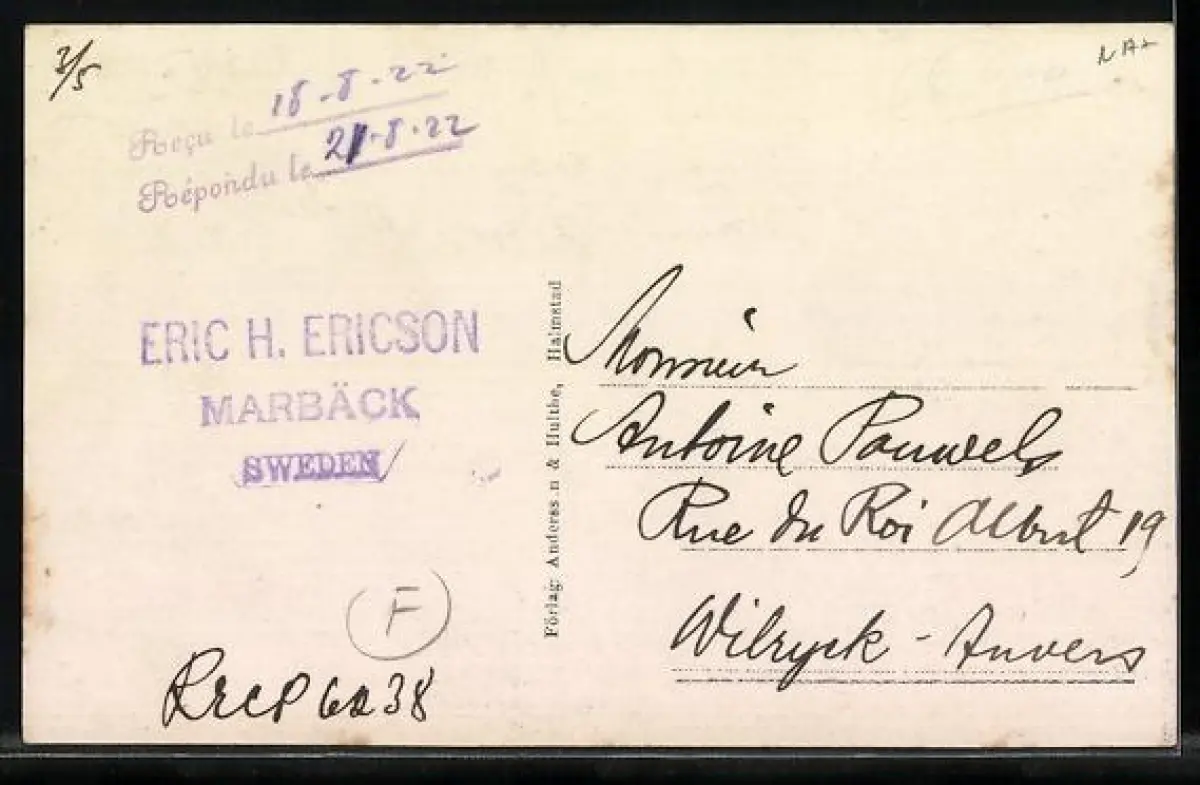 2/5
Reçu le 18-8-22
Répondu le 21-8-22
ERIC H. ERICSON
MARBÄCK
SWEDEN
F
6238
Förlag: Andersson & Hulthe, Halmstad
Monsieur
Antoine Pauwels
Rue du Roi Albert 19,
Wilryck - Anvers